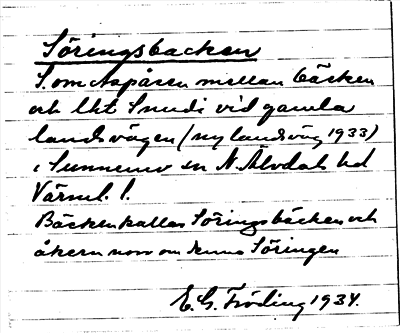 Söringsbacken
S. om Aspåsen mellan bäcken
och Utt Snudi vid gamla
landsvägen (ny landsväg 1933)
i Sunnemo sn N. Älvdals hd
Värml. l.
Bäcken kallas Söringsbäcken och
åkern norr om denna Söringen
E. G. Fröding 1934.